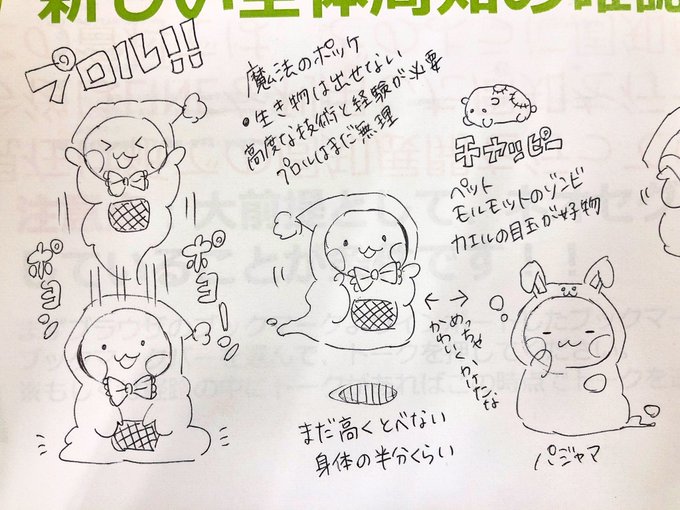 新しい全体周知の確認
プロル!!
魔法のポッケ
•生き物は出せない
高度な技術と経験が必要
プロルはまだ無理
チャッピー
ペット
モルモットのゾンビ
カエルの目玉が好物
ポヨン
ポヨー!
めっちゃ
かわいくかけたな
まだ高くとべない
身体の半分くらい
パジャマ